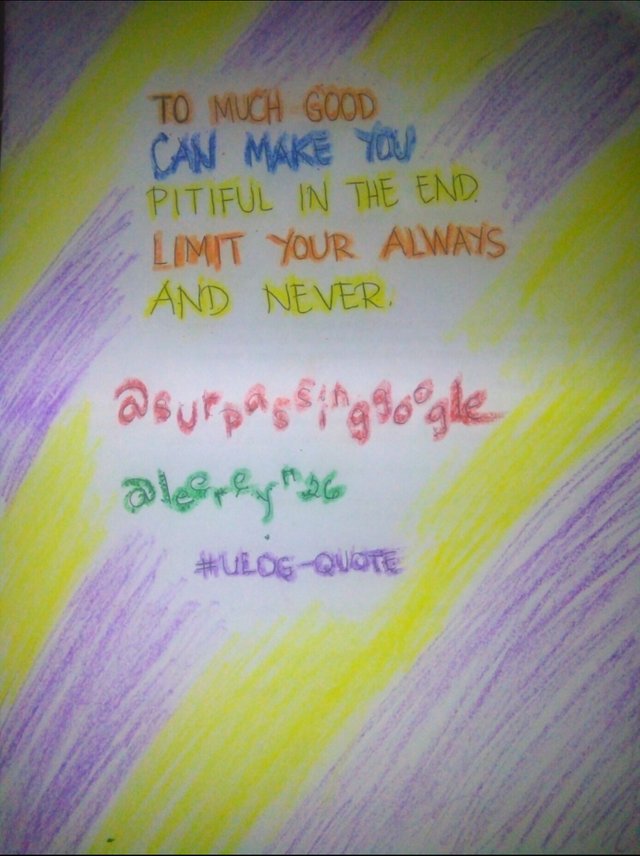 TO MUCH GOOD
CAN MAKE YOU
PITIFUL IN THE END.
LIMIT YOUR ALWAYS
AND NEVER.
@surpassinggoogle
@leereyn26
#ULOG-QUOTE